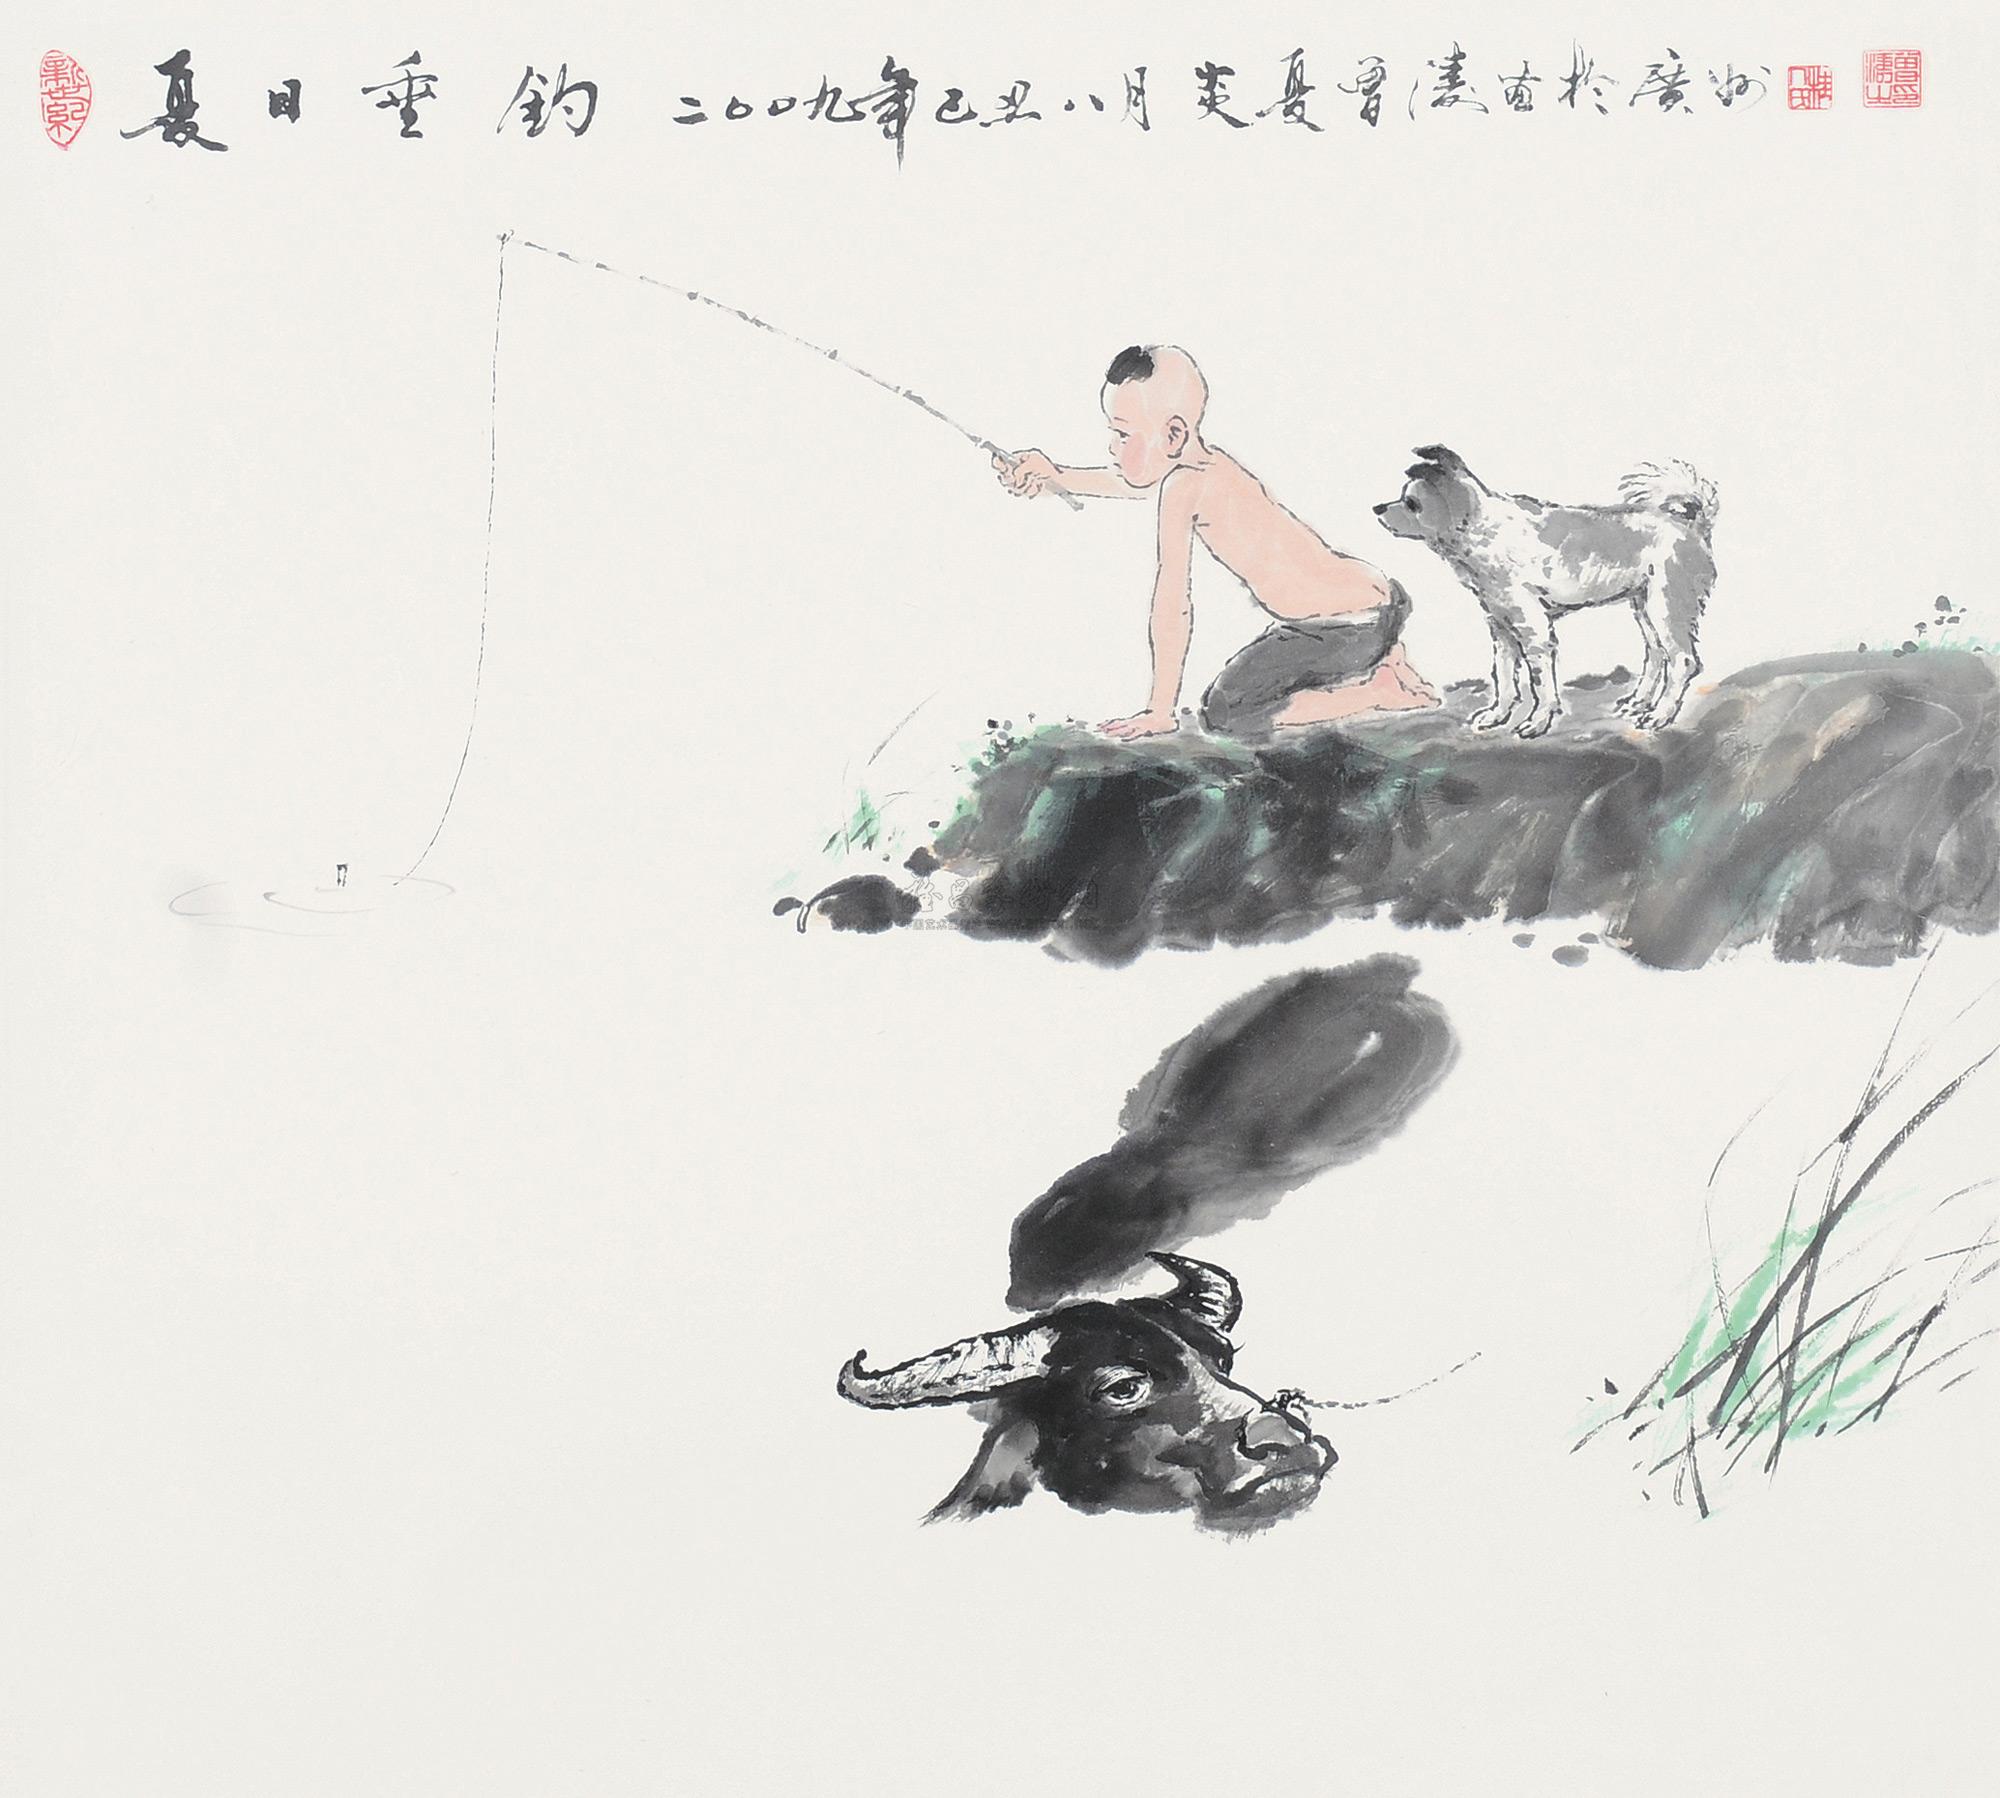 夏日垂钓 二〇〇九年己丑八月炎夏曾涛画於廣州